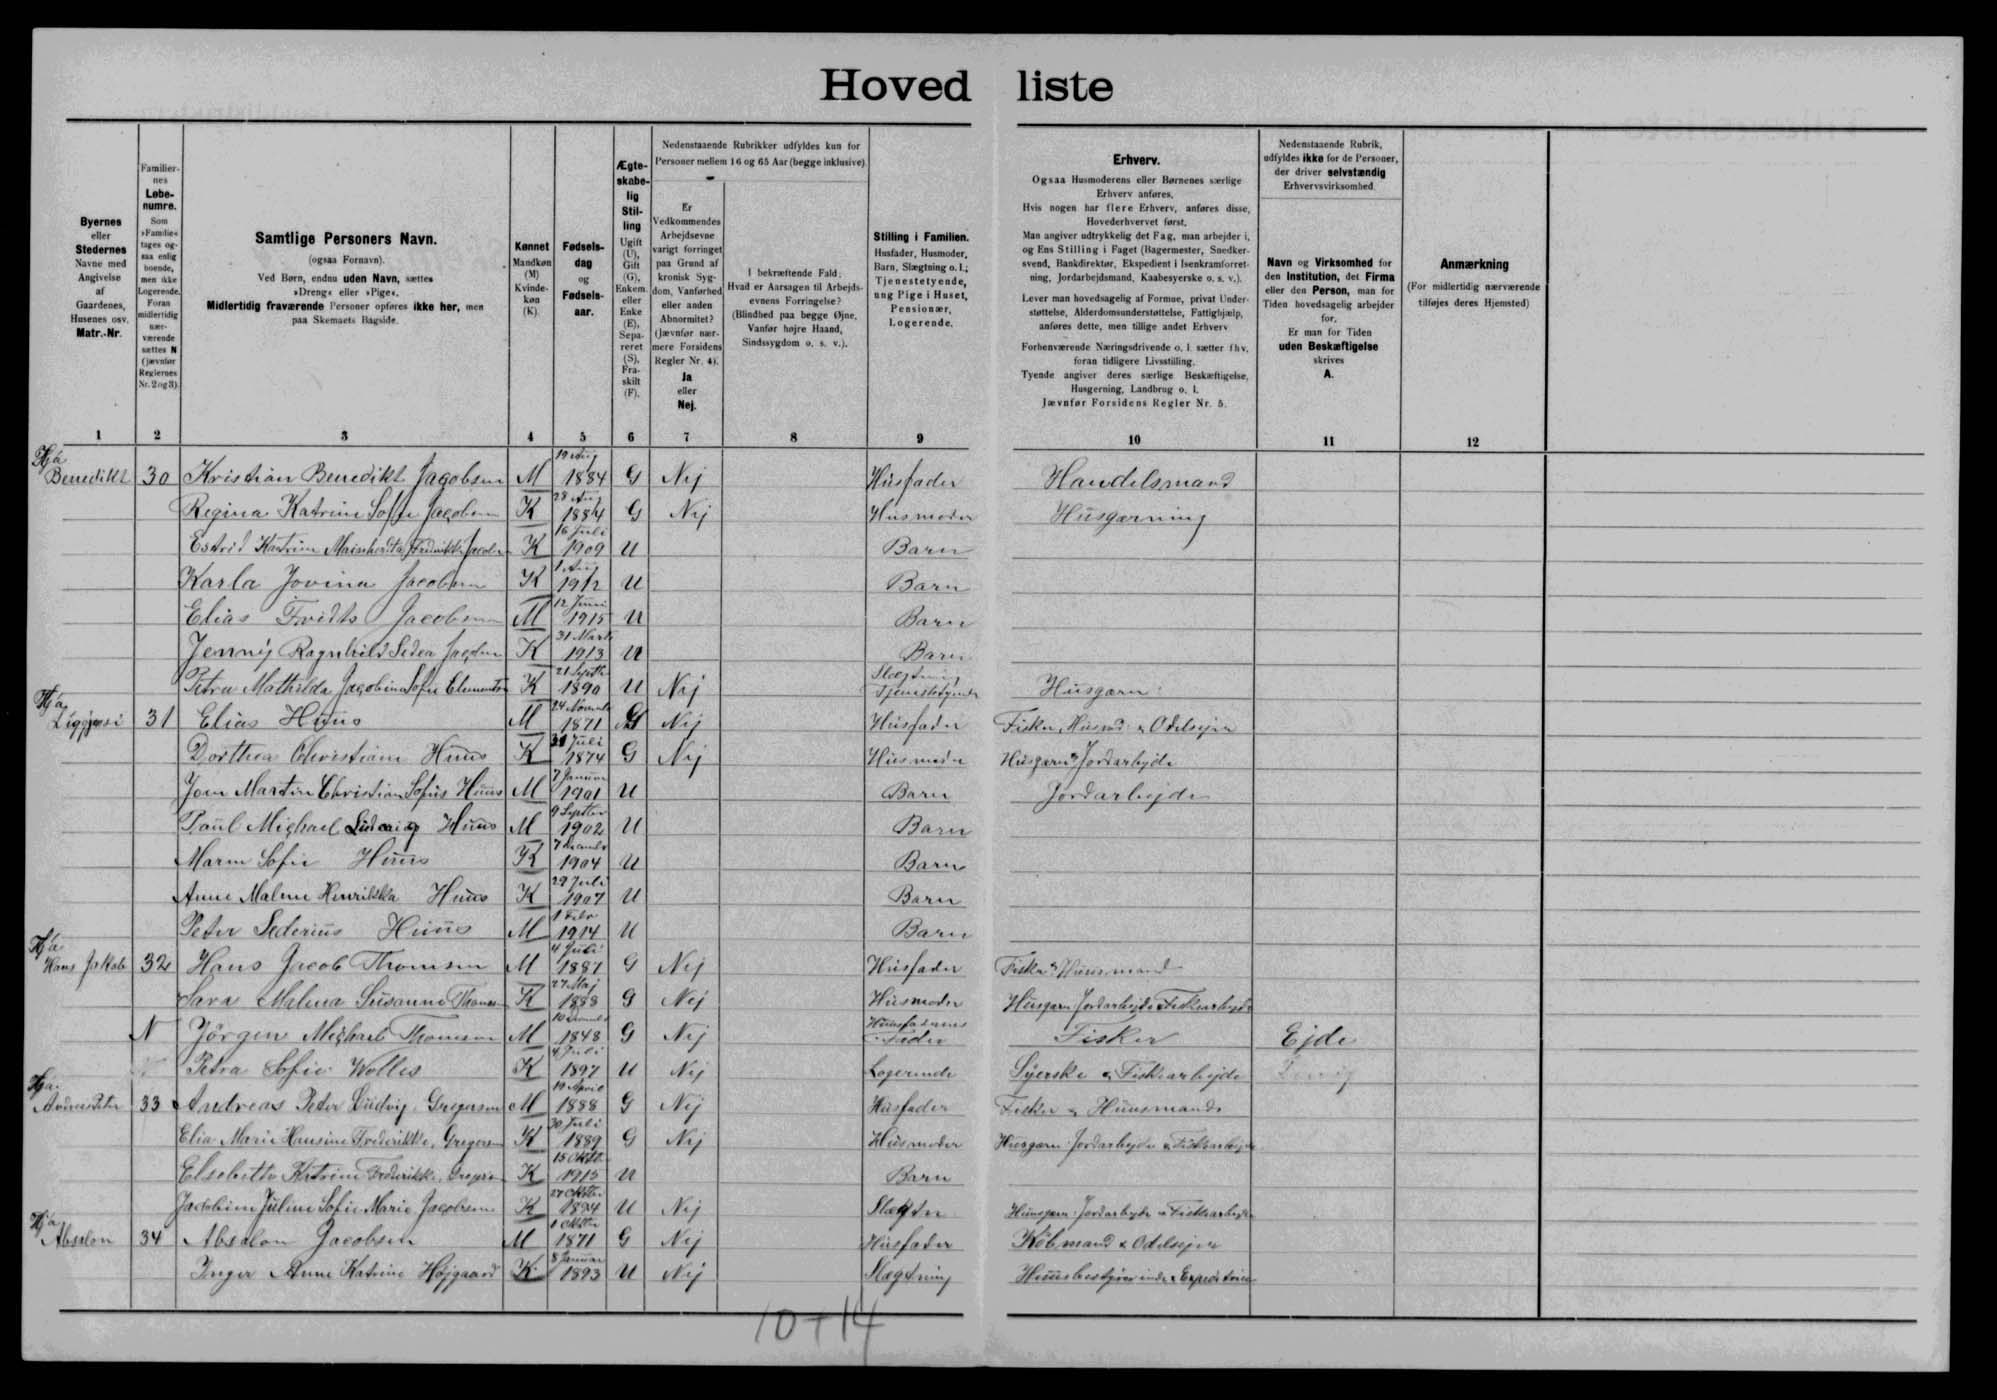 Hovedliste
Byernes
eller
Stedernes
Navne med
Angivelse
af
Gaardenes,
Husenes osv.
Matr.-Nr.
Familier-
nes
Løbe-
numre.
Som
»Familie«
tages og-
saa enlig
boende,
men ikke
Logerende.
Foran
midlertidig
nær-
værende
sættes N
(jævnfør
Reglernes
Nr. 2 og 3).
Samtlige Personers Navn.
(ogsaa Fornavn).
Ved Børn, endnu uden Navn, sættes
»Dreng« eller »Pige«.
Midlertidig fraværende Personer opføres ikke her, men
paa Skemaets Bagside.
Kønnet
Mandkøn
(M)
Kvinde-
køn
(K)
Fødsels-
dag
og
Fødsels-
aar.
Ægte-
skabe-
lig
Stil-
ling
Ugift
(U),
Gift
(G),
Enkem.
eller
Enke
(E),
Sepa-
reret
(S),
Fra-
skilt
(F).
Nedenstaaende Rubrikker udfyldes kun for
Personer mellem 16 og 65 Aar (begge inklusive).
Er
Vedkommendes
Arbejdsevne
varigt forringet
paa Grund af
kronisk Syg-
dom, Vanførhed
eller anden
Abnormitet?
(Jævnfør nær-
mere Forsidens
Regler Nr. 4).
Ja
eller
Nej.
I bekræftende Fald:
Hvad er Aarsagen til Arbejds-
evnens Forringelse?
(Blindhed paa begge Øjne,
Vanfør højre Haand,
Sindssygdom o. s. v.).
Stilling i Familien.
Husfader, Husmoder,
Barn, Slægtning o. l.;
Tjenestetyende,
ung Pige i Huset,
Pensionær,
Logerende.
Erhverv.
Ogsaa Husmoderens eller Børnenes særlige
Erhverv anføres.
Hvis nogen har flere Erhverv, anføres disse,
Hovederhvervet først.
Man angiver udtrykkelig det Fag, man arbejder i,
og Ens Stilling i Faget (Bagermester, Snedker-
svend, Bankdirektør, Ekspedient i Isenkramforret-
ning, Jordarbejdsmand, Kaabesyerske o. s. v.).
Lever man hovedsagelig af Formue, privat Under-
støttelse, Alderdomsunderstøttelse, Fattighjælp,
anføres dette, men tillige andet Erhverv
Forhenværende Næringsdrivende o. l. sætter fhv.
foran tidligere Livsstilling.
Tyende angiver deres særlige Beskæftigelse,
Husgerning, Landbrug o. l.
Jævnfør Forsidens Regler Nr. 5.
Nedenstaaende Rubrik,
udfyldes ikke for de Personer,
der driver selvstændig
Erhvervsvirksomhed.
Navn og Virksomhed for
den Institution, det Firma
eller den Person, man for
Tiden hovedsagelig arbejder
for.
Er man for Tiden
uden Beskæftigelse
skrives
A.
Anmærkning
(For midlertidig nærværende
tilføjes deres Hjemsted)
1 2 3 4 5 6 7 8 9 10 11 12
Hjá Benedikt 30 Kristian Benedikt Jacobsen M 19 Aug 1884 G Nej Husfader Handelsmand
Regina Katrine Sofie Jacobsen K 28 Aug 1884 G Nej Husmoder Husgærning
Estrid Katrine Jacobsen K 16 Juli 1909 U Barn
Karla Jovina Jacobsen K 1 Aug 1912 U Barn
Elias Jacobsen M 12 Juni 1915 U Barn
Jenny Ragnhild Jacobsen K 31 Marts 1913 U Barn
Petra Mathilda Jacobina Sofie K 21 Septb 1890 U Nej Slægtning Tjenestetyende Husgærn.
Hjá 31 Elias Huus M 24 Novemb 1871 G Nej Husfader Fisker, & Odelsejer
Dorthea Christiane Huus K Juli 1874 G Nej Husmoder Husgærn & Jordarbejde
Martin Christian Sofus Huus M 7 Januar 1901 U Barn Jordarbejde
Poul Michael Ludvig Huus M 9 Septber 1902 U Barn
Maren Sofie Huus K 7 Decembr 1904 U Barn
Anne Malene Henrikka Huus K 29 Juli 1907 U Barn
Peter Sederius Huus M 1 Febr 1914 U Barn
Hjá Hans Jakob 32 Hans Jacob Thomsen M 4 Juli 1887 G Nej Husfader Fisker & Huusmand
Sara Malena Susanne Thomsen K 27 Maj 1888 G Nej Husmoder Husgærn Jordarbejde & Fiskearbejde
N Jörgen Michael Thomsen M 10 1848 G Nej Huusfaderens Fader Fisker Ejde
Petra Sofie Wolles K 4 Juli 1897 U Nej Logerende Syerske & Fiskearbejde
Hjá Andreas Peter 33 Andreas Peder Ludvig Gregersen M 19 April 1888 G Nej Husfader Fisker & Huusmand
Elia Marie Hansine Frederikke Gregersen K 30 Juli 1889 G Nej Husmoder Husgærn Jordarbejde & Fiskearbejde
Elsebeth Katrine Frederikke K 15 Oktb 1915 U Barn
Jacobine Juline Sofie Marie Jacobsen K 27 Oktber 1894 U Nej Huusgærn. Jordarbejde & Fiskearbejde
Hjá Absalon 34 Absalon Jacobsen M 1 Oktber 1871 G Nej Husfader Köbmand & Odelsejer
Inger Anne Katrine Højgaard K 8 Januar 1893 U Nej Slægtning Huusbestyrerinde & Expeditrice
10+14